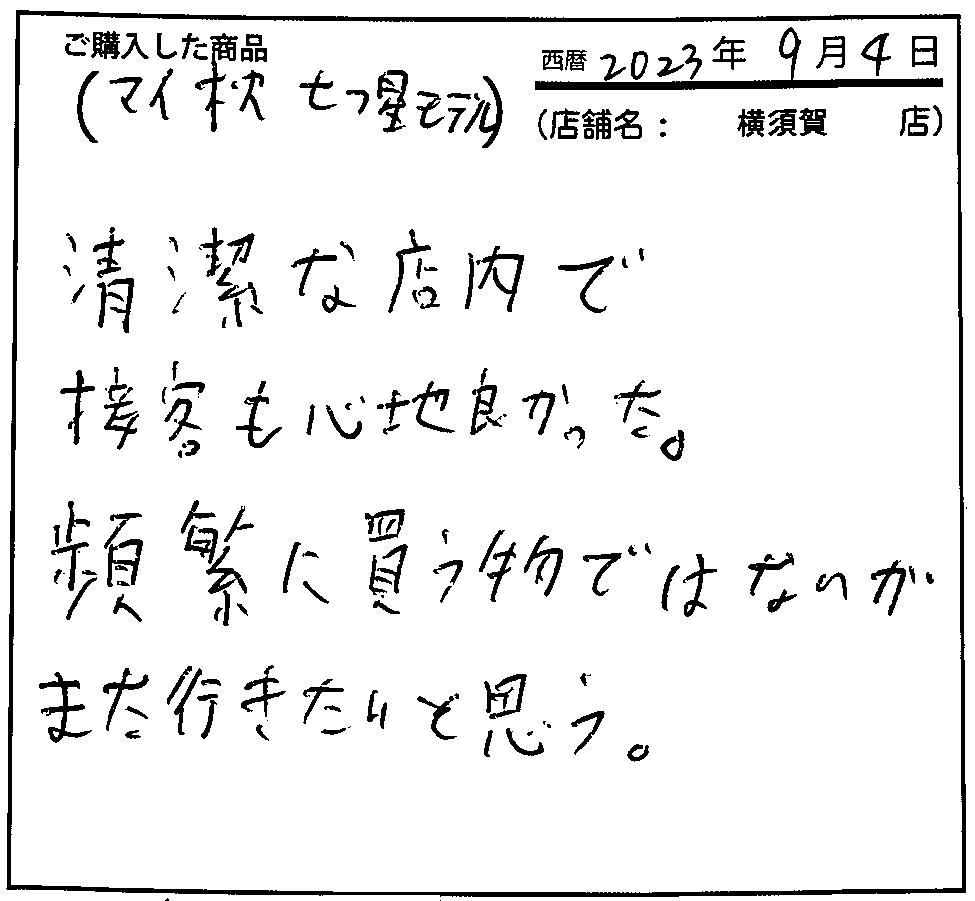 ご購入した商品
(マイ枕 七つ星モデル)
西暦 2023年 9月4日
(店舗名: 横須賀 店)
清潔な店内で
接客も心地良かった。
頻繁に買う物ではないが
また行きたいと思う。